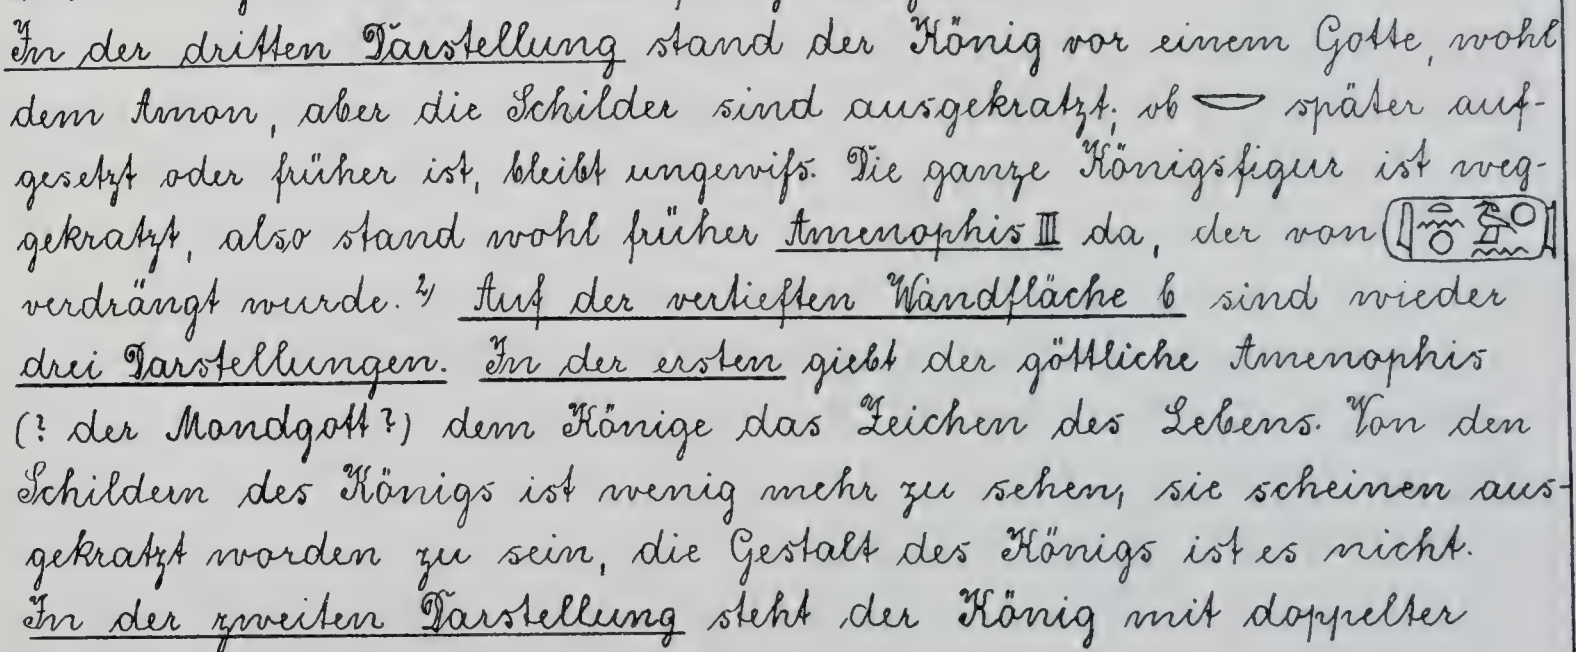 In der dritten Darstellung stand der König vor einem Gotte, wohl
dem Amon, aber die Schilder sind ausgekratzt; ob 𓎟 später auf-
gesetzt oder früher ist, bleibt ungewifs. Die ganze Königsfigur ist weg-
gekratzt, also stand wohl früher Amenophis III da, der von
verdrängt wurde. 2) Auf der vertieften Wandfläche b sind wieder
drei Darstellungen. In der ersten giebt der göttliche Amenophis
(? der Mondgott?) dem Könige das Zeichen des Lebens. Von den
Schildern des Königs ist wenig mehr zu sehen, sie scheinen aus-
gekratzt worden zu sein, die Gestalt des Königs ist es nicht.
In der zweiten Darstellung steht der König mit doppelter